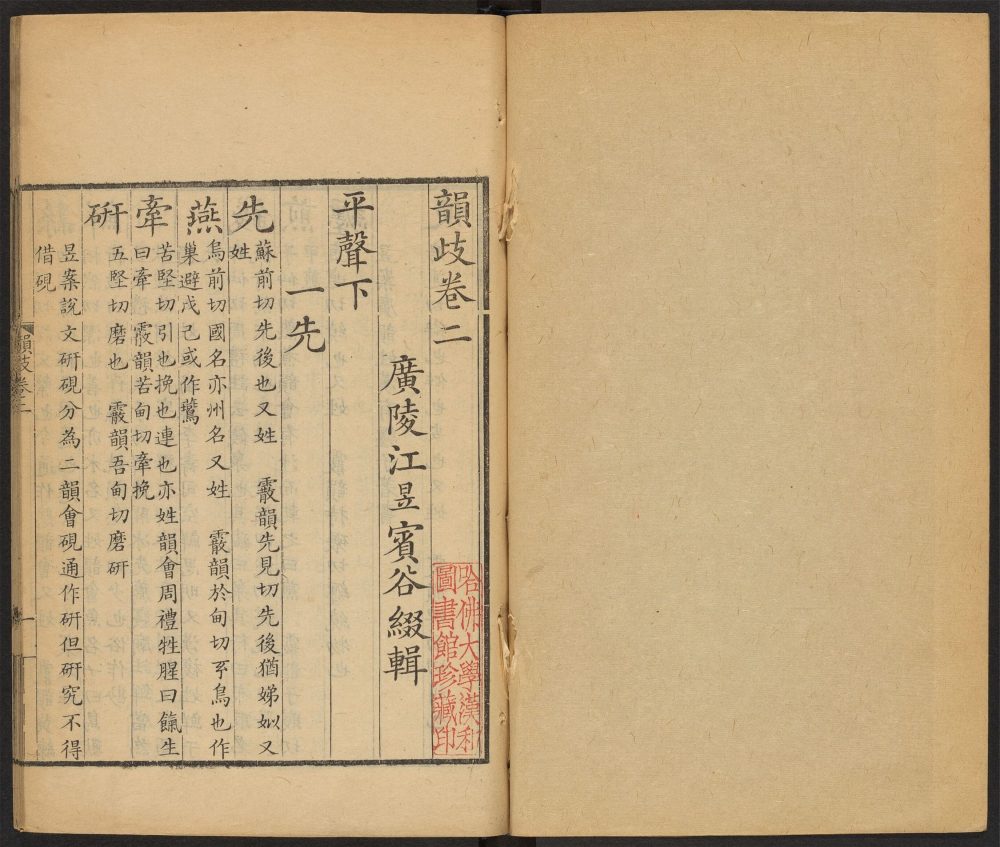 韻歧卷二
廣陵江昱賓谷綴輯
平聲下
一先
先 蘇前切先後也又姓 霰韻先見切先後猶娣姒又
姓
燕 烏前切國名亦州名又姓 霰韻於甸切玄鳥也作
巢避戊己或作鷰
牽 苦堅切引也挽也連也亦姓韻會周禮牲腥曰餼生
曰牽 霰韻苦甸切牽挽
硏 五堅切磨也 霰韻吾甸切磨硏
昱案說文硏硯分為二韻會硯通作硏但硏究不得
借硯
韻歧卷二
一
哈佛大學漢和
圖書館珍藏印